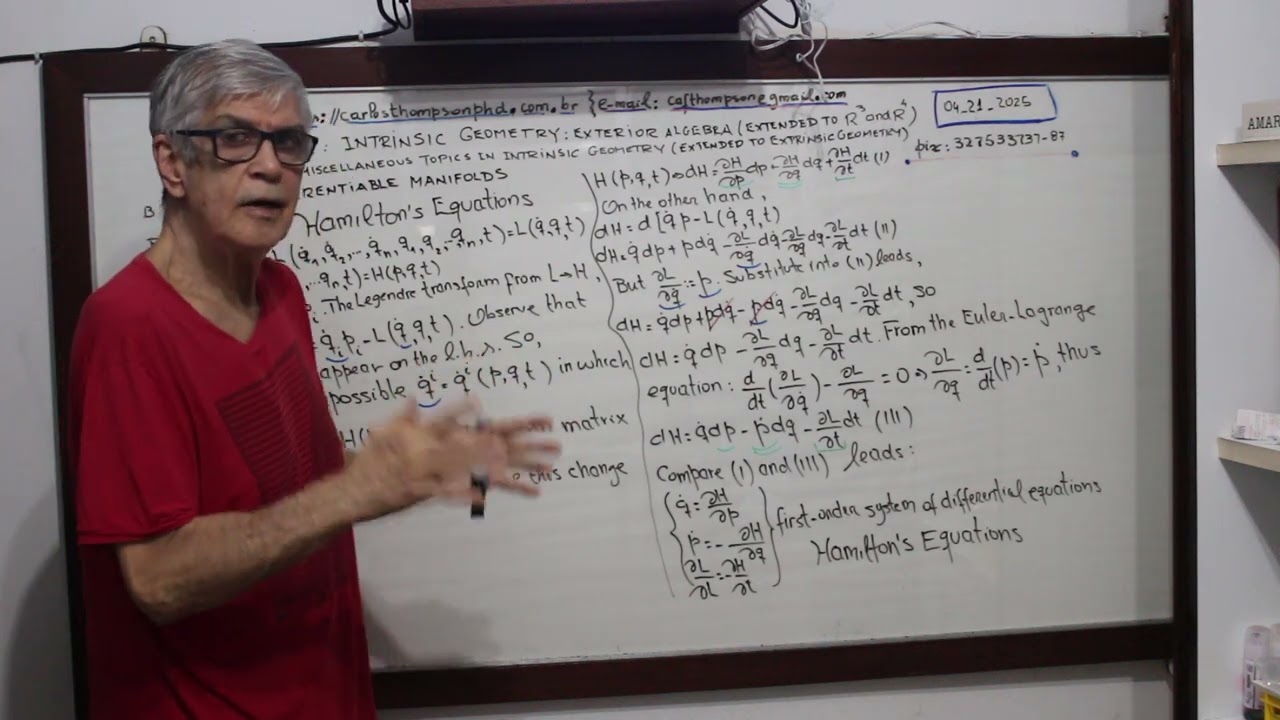 ://carlosthompsonphd.com.br } e-mail: casthompson@gmail.com
04_21_2025
: INTRINSIC GEOMETRY: EXTERIOR ALGEBRA (EXTENDED TO R³ and R⁴)
MISCELLANEOUS TOPICS IN INTRINSIC GEOMETRY (EXTENDED TO EXTRINSIC GEOMETRY)
RENTIABLE MANIFOLDS
pix: 327533737-87
Hamilton's Equations
L(q̇₁, q̇₂,..., q̇ₙ, q₁, q₂,..qₙ, t) = L(q̇, q, t)
...qₙ, t) = H(p, q, t)
. The Legendre transform from L→H,
= q̇ᵢpᵢ - L(q̇, q, t). Observe that
appear on the l.h.s. So,
possible q̇ⁱ = q̇ⁱ(p, q, t) in which
H(
matrix
this change
H(p, q, t) ⇒ dH = ∂H/∂p dp + ∂H/∂q dq + ∂H/∂t dt (I)
On the other hand,
dH = d[q̇p - L(q̇, q, t)
dH = q̇dp + pdq̇ - ∂L/∂q̇ dq̇ - ∂L/∂q dq - ∂L/∂t dt (II)
But ∂L/∂q̇ := p. Substitute into (II) leads,
dH = q̇dp + pdq̇ - pdq̇ - ∂L/∂q dq - ∂L/∂t dt, so
dH = q̇dp - ∂L/∂q dq - ∂L/∂t dt. From the Euler-Lagrange
equation: d/dt(∂L/∂q̇) - ∂L/∂q = 0 ⇒ ∂L/∂q = d/dt(p) = ṗ, thus
dH = q̇dp - ṗdq - ∂L/∂t dt (III)
Compare (I) and (III) leads:
{ q̇ = ∂H/∂p
ṗ = - ∂H/∂q
∂L/∂t = - ∂H/∂t }
first-order system of differential equations
Hamilton's Equations
AMAR